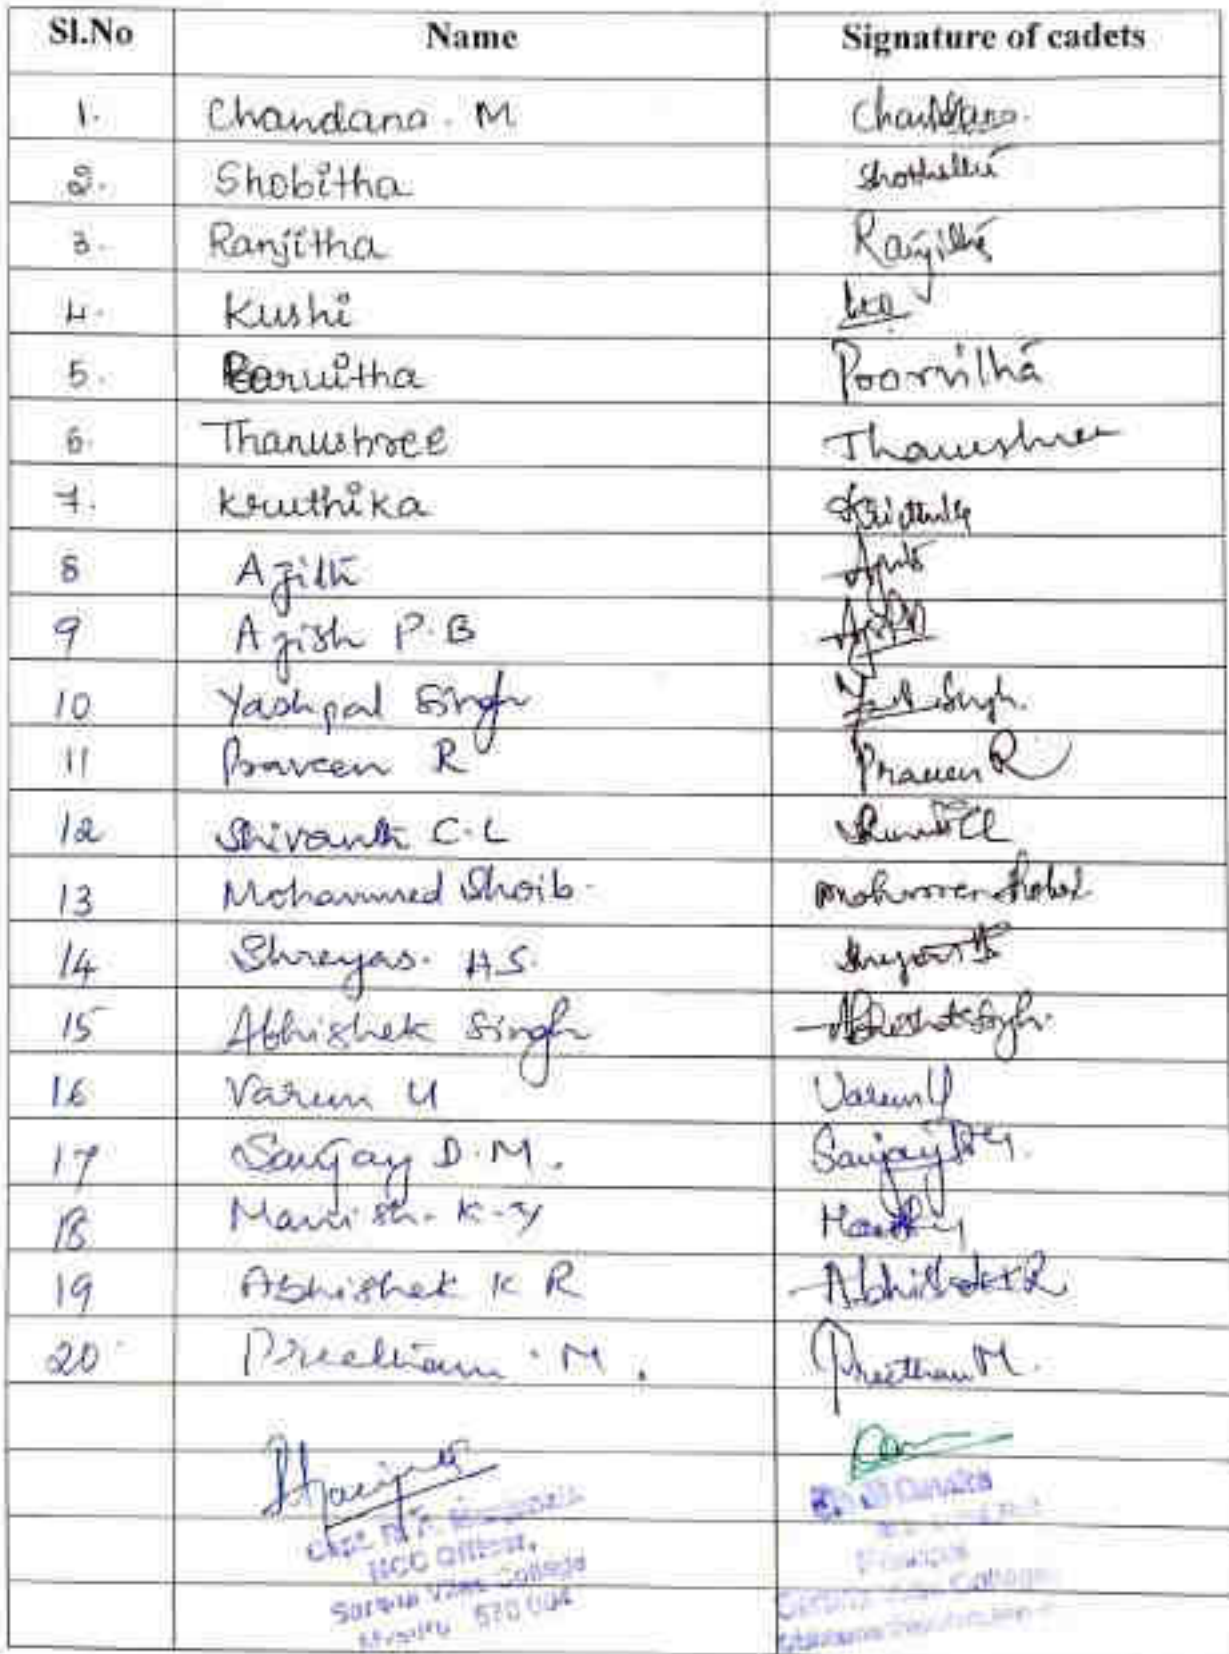 Sl.No Name Signature of cadets
1. Chandana. M Chandana.
2. Shobitha
3. Ranjitha Ranjitha
4. Kushi
5. Poorvitha
6. Thanushree Thanushree
7. Kruthika Kruthika
8 Ajith Ajith
9 Ajish P.B
10 Yashpal Singh Yash Singh.
11 Praveen R Praveen R
12 Shivanth C.L
13 Mohammed Shoib.
14 Shreyas. H.S.
15 Abhishek Singh Abhishek Singh.
16 Varun U Varun U
17 Sanjay D.M. Sanjay D.M.
18 Manish. K-Y
19 Abhishek K R Abhishek K R
20 Preetham. M. Preetham M.
NCC Officer,
Sarada Vilas College
Mysuru 570 004
Principal
Sarada Vilas College